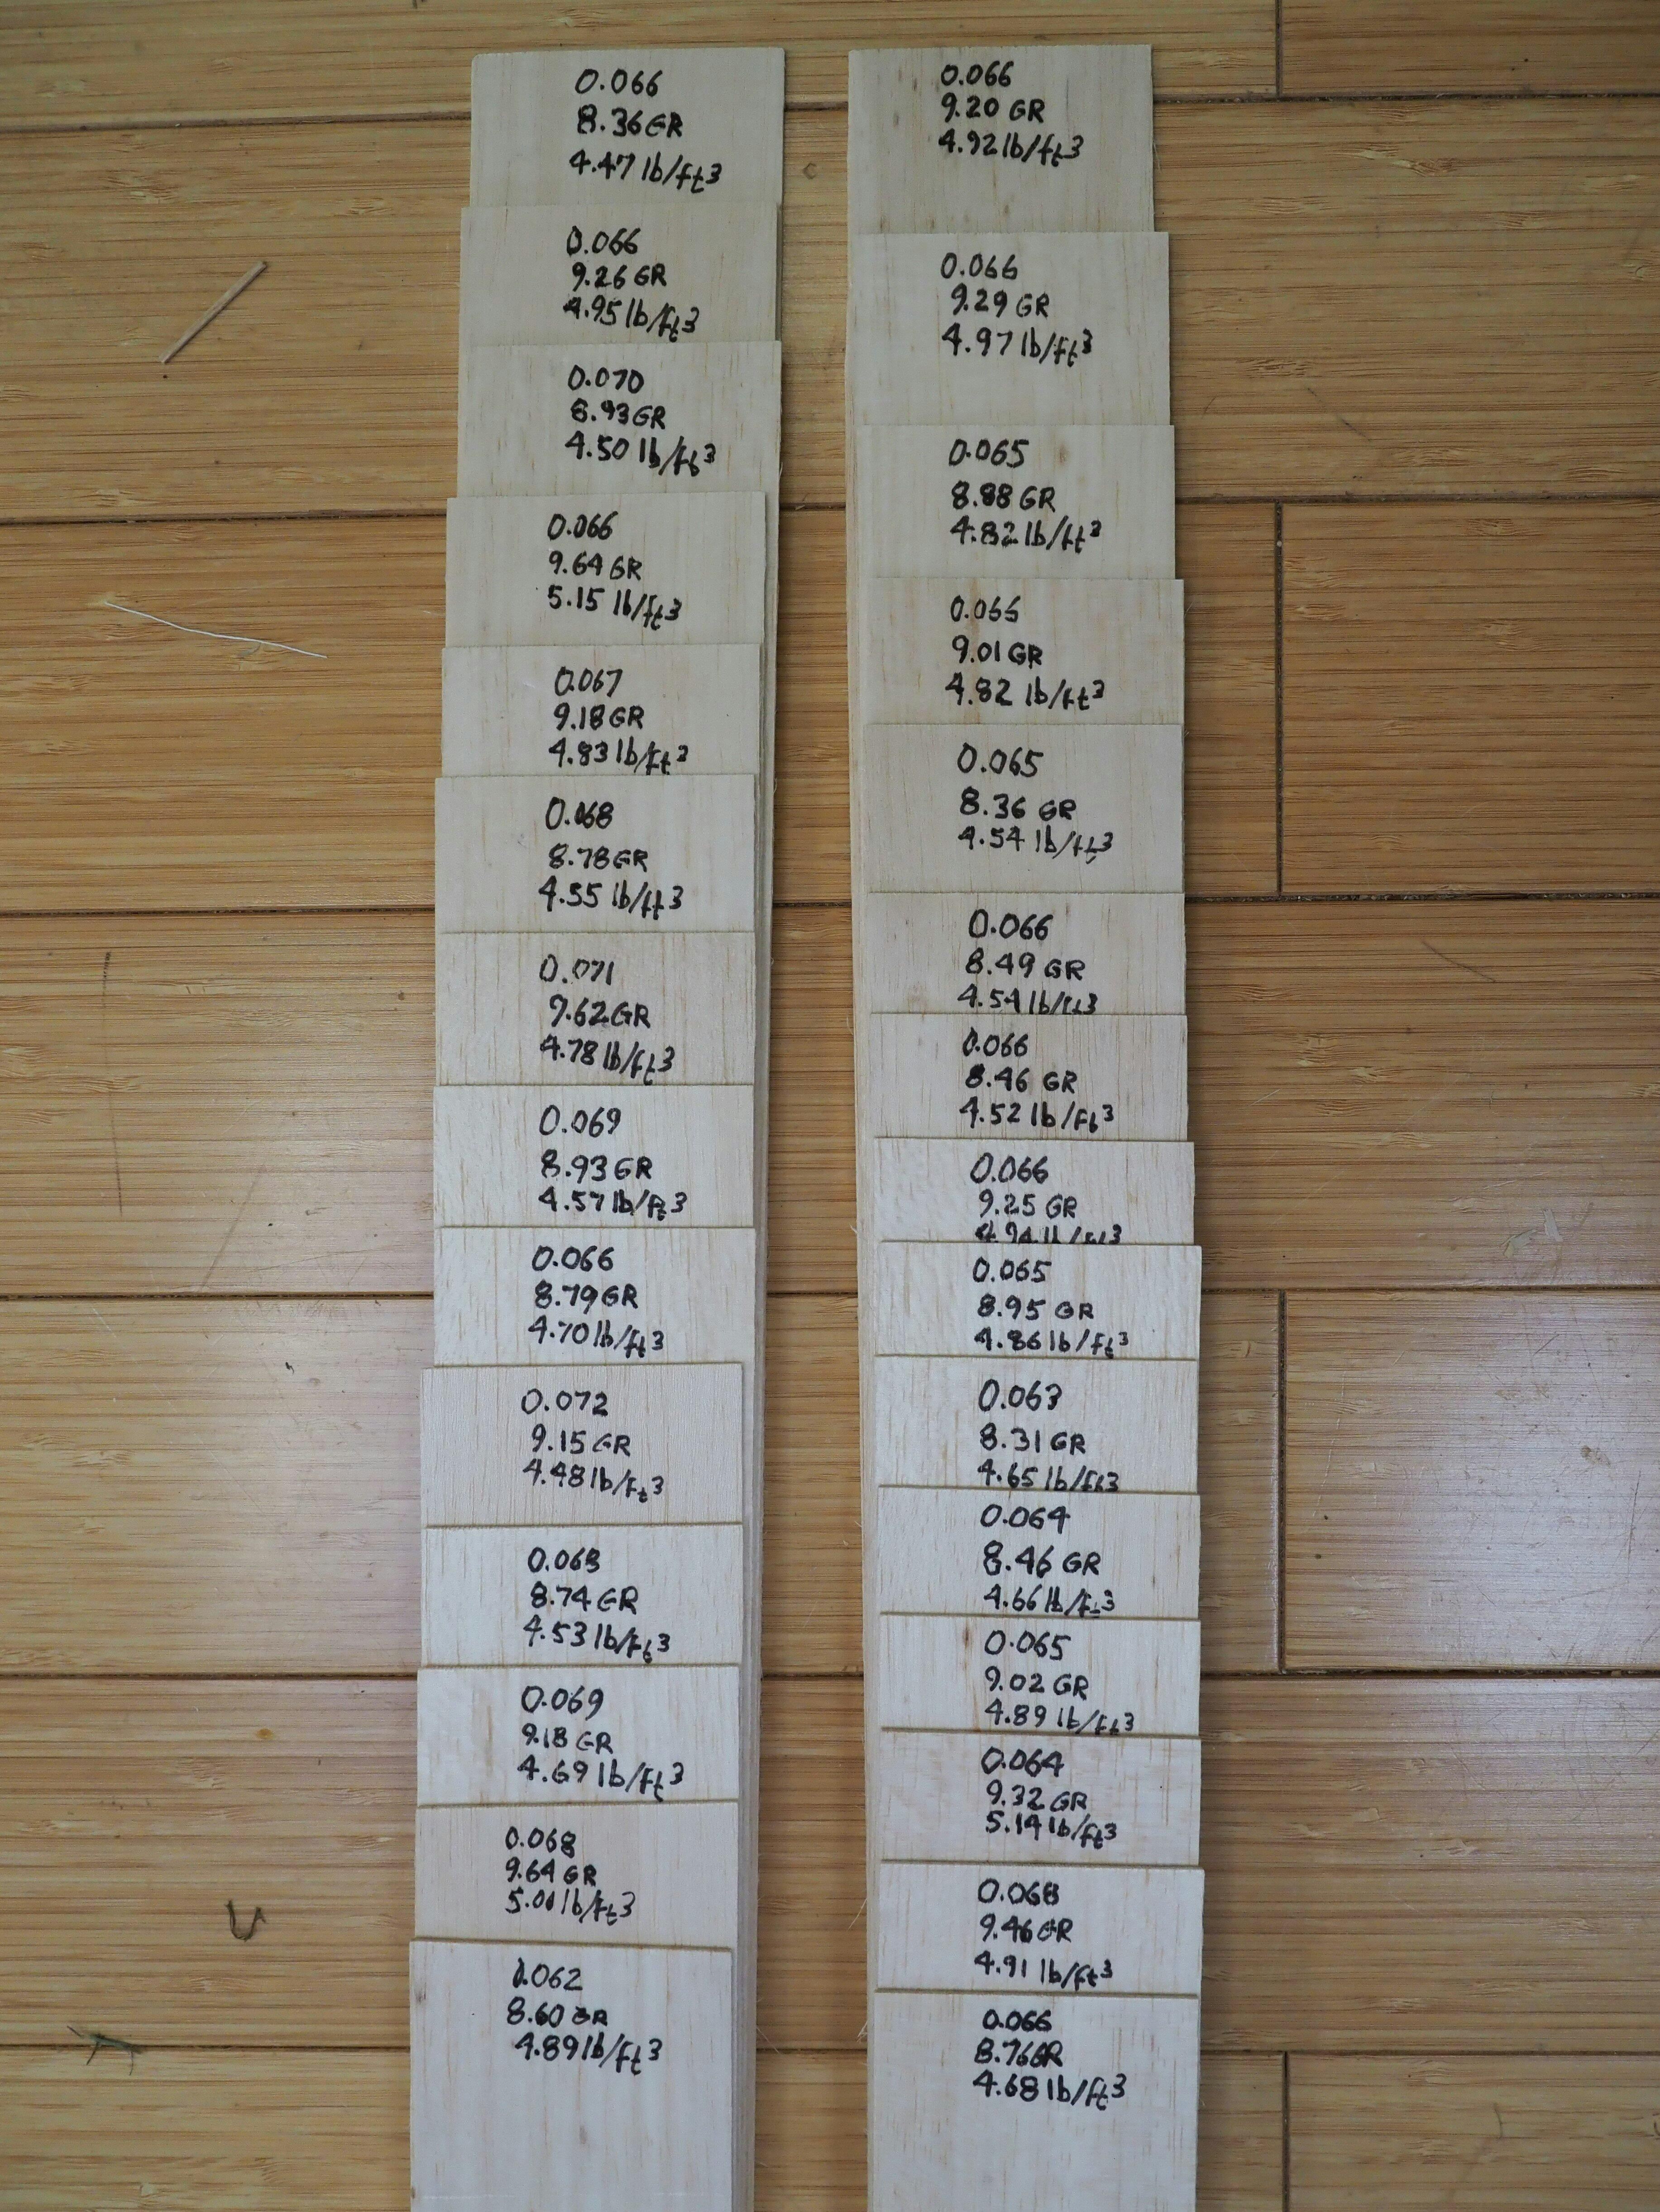 0.066
8.36 GR
4.47 lb/ft3
0.066
9.26 GR
4.95 lb/ft3
0.070
8.93 GR
4.50 lb/ft3
0.066
9.64 GR
5.15 lb/ft3
0.067
9.18 GR
4.83 lb/ft3
0.068
8.78 GR
4.55 lb/ft3
0.071
9.62 GR
4.78 lb/ft3
0.069
8.93 GR
4.57 lb/ft3
0.066
8.79 GR
4.70 lb/ft3
0.072
9.15 GR
4.48 lb/ft3
8.74 GR
4.53 lb/ft3
0.069
9.18 GR
4.69 lb/ft3
0.068
9.64 GR
lb/ft3
0.062
8.60 GR
4.89 lb/ft3
0.066
9.20 GR
4.92 lb/ft3
0.066
9.29 GR
4.97 lb/ft3
0.065
8.88 GR
4.82 lb/ft3
0.066
9.01 GR
4.82 lb/ft3
0.065
8.36 GR
4.54 lb/ft3
0.066
8.49 GR
4.54 lb/ft3
0.066
8.46 GR
4.52 lb/ft3
0.066
9.25 GR
4.94 lb/ft3
0.065
8.95 GR
4.86 lb/ft3
0.063
8.31 GR
4.65 lb/ft3
0.064
8.46 GR
4.66 lb/ft3
0.065
9.02 GR
4.89 lb/ft3
0.064
9.32 GR
5.14 lb/ft3
0.068
9.46 GR
4.91 lb/ft3
0.066
8.76 GR
4.68 lb/ft3